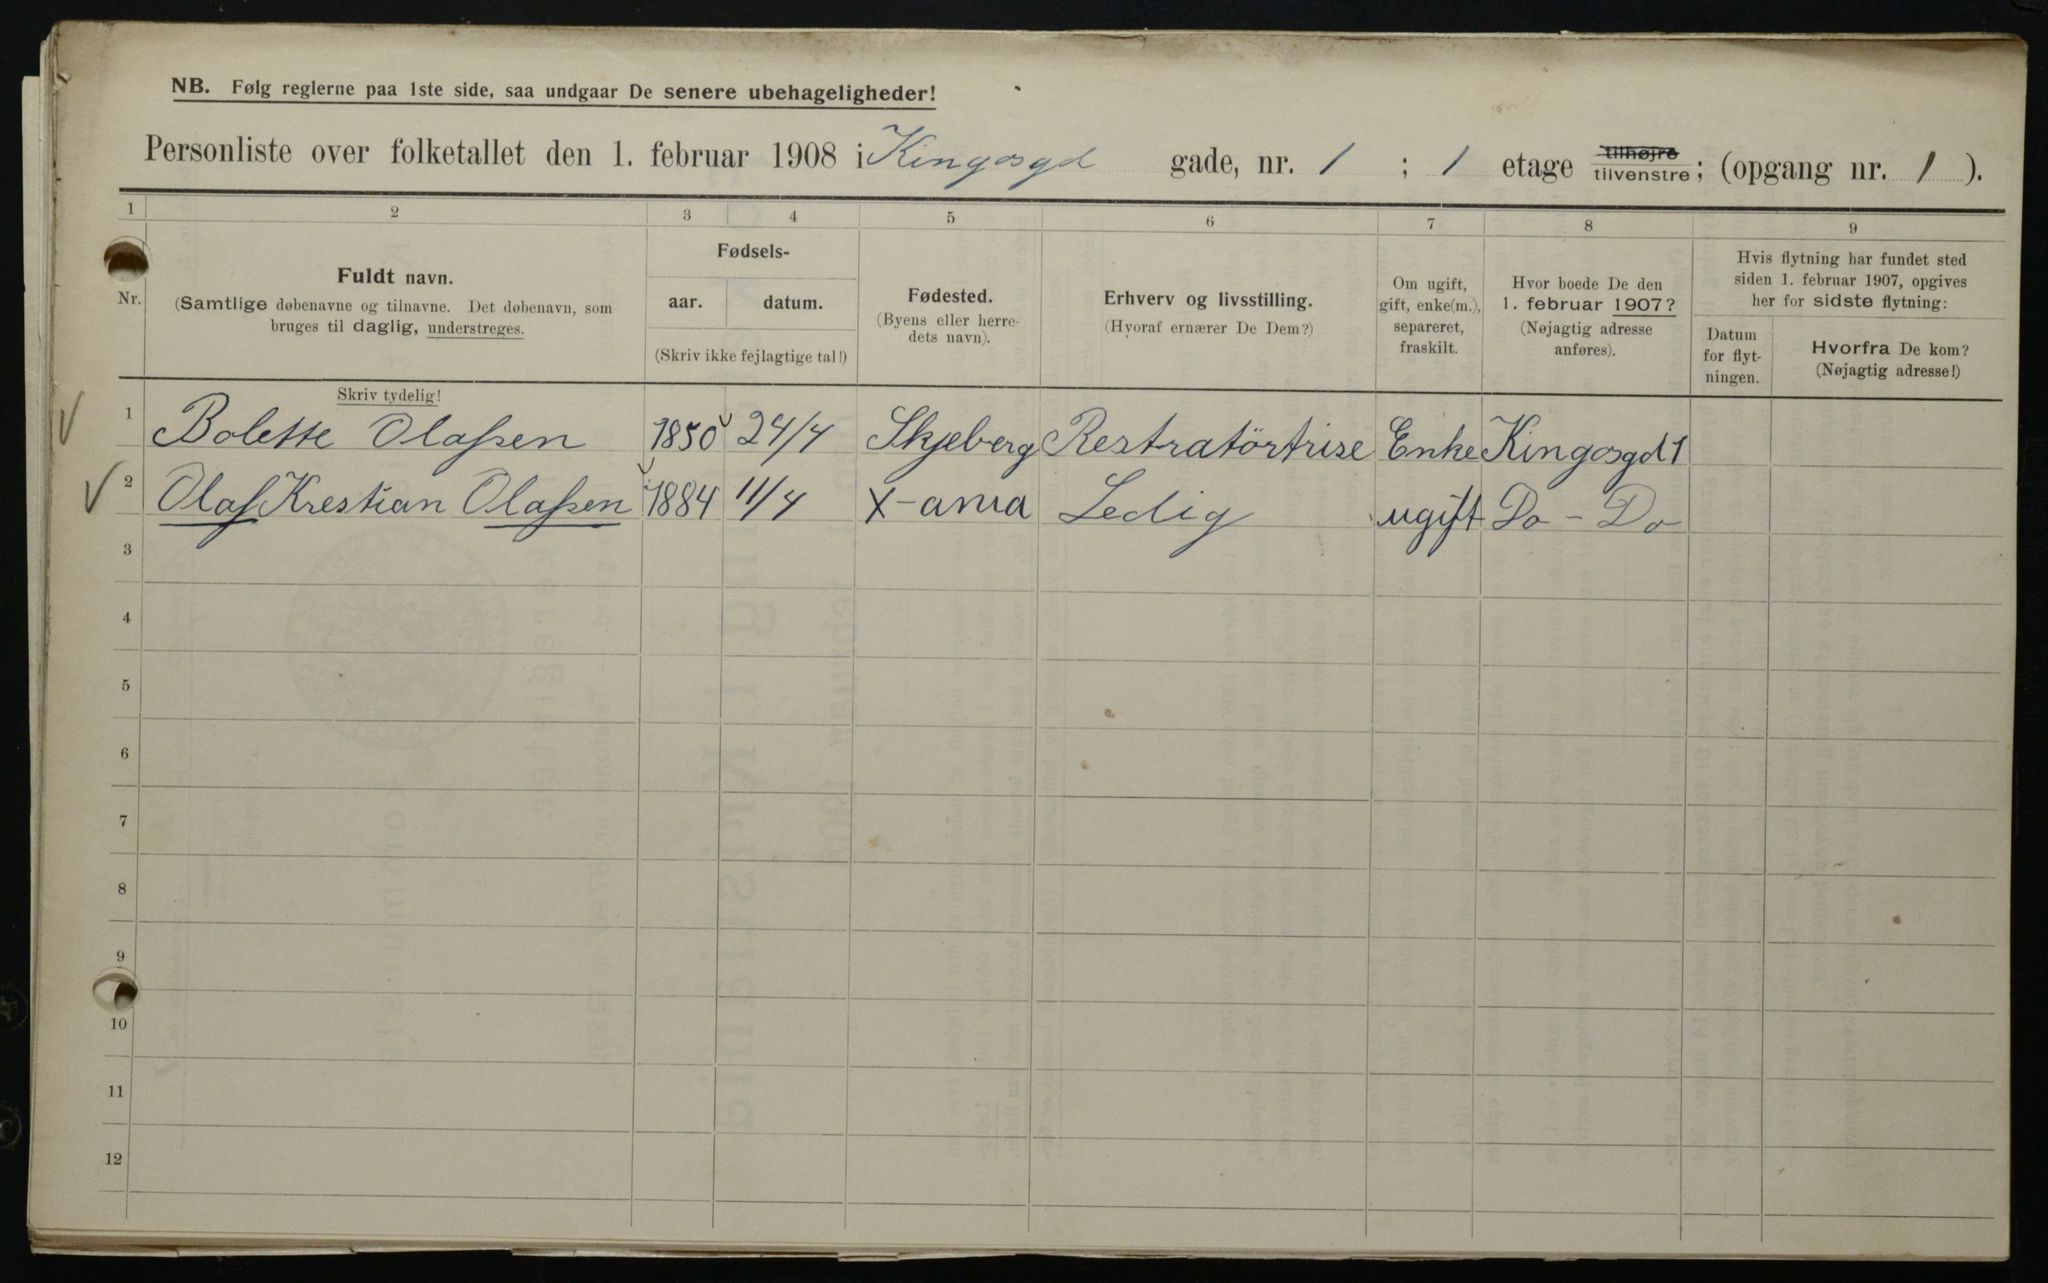 NB. Følg reglerne paa 1ste side, saa undgaar De senere ubehageligheder!
Personliste over folketallet den 1. februar 1908 i Kingosgd gade, nr. 1 ; 1 etage tilhøjre tilvenstre; (opgang nr. 1 ).
1 2 3 4 5 6 7 8 9
Nr.
Fuldt navn.
(Samtlige døbenavne og tilnavne. Det døbenavn, som
bruges til daglig, understreges.
Fødsels-
aar. datum.
(Skriv ikke fejlagtige tal!)
Fødested.
(Byens eller herre-
dets navn).
Erhverv og livsstilling.
(Hvoraf ernærer De Dem?)
Om ugift,
gift, enke(m.),
separeret,
fraskilt.
Hvor boede De den
1. februar 1907?
(Nøjagtig adresse
anføres).
Hvis flytning har fundet sted
siden 1. februar 1907, opgives
her for sidste flytning:
Datum
for flyt-
ningen.
Hvorfra De kom?
(Nøjagtig adresse!)
Skriv tydelig!
1 Bolette Olafsen 1850 24/4 Skjeberg Restratörtrise Enke Kingosgd 1
2 Olaf Krestian Olafsen 1884 11/4 X-ania Ledig ugift Do - Do
3
4
5
6
7
8
9
10
11
12